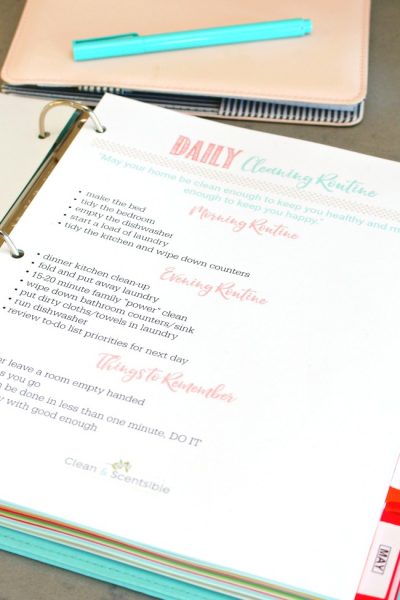 DAILY Cleaning Routine
"May your home be clean enough to keep you healthy and m
enough to keep you happy."
Morning Routine
• make the bed
• tidy the bedroom
• empty the dishwasher
• start a load of laundry
• tidy the kitchen and wipe down counters
Evening Routine
• dinner kitchen clean-up
• fold and put away laundry
• 15-20 minute family "power" clean
• wipe down bathroom counters/sink
• put dirty cloths/towels in laundry
• run dishwasher
• review to-do list priorities for next day
Things to Remember
er leave a room empty handed
s you go
n be done in less than one minute, DO IT
y with good enough
Clean & Scentsible
MAY